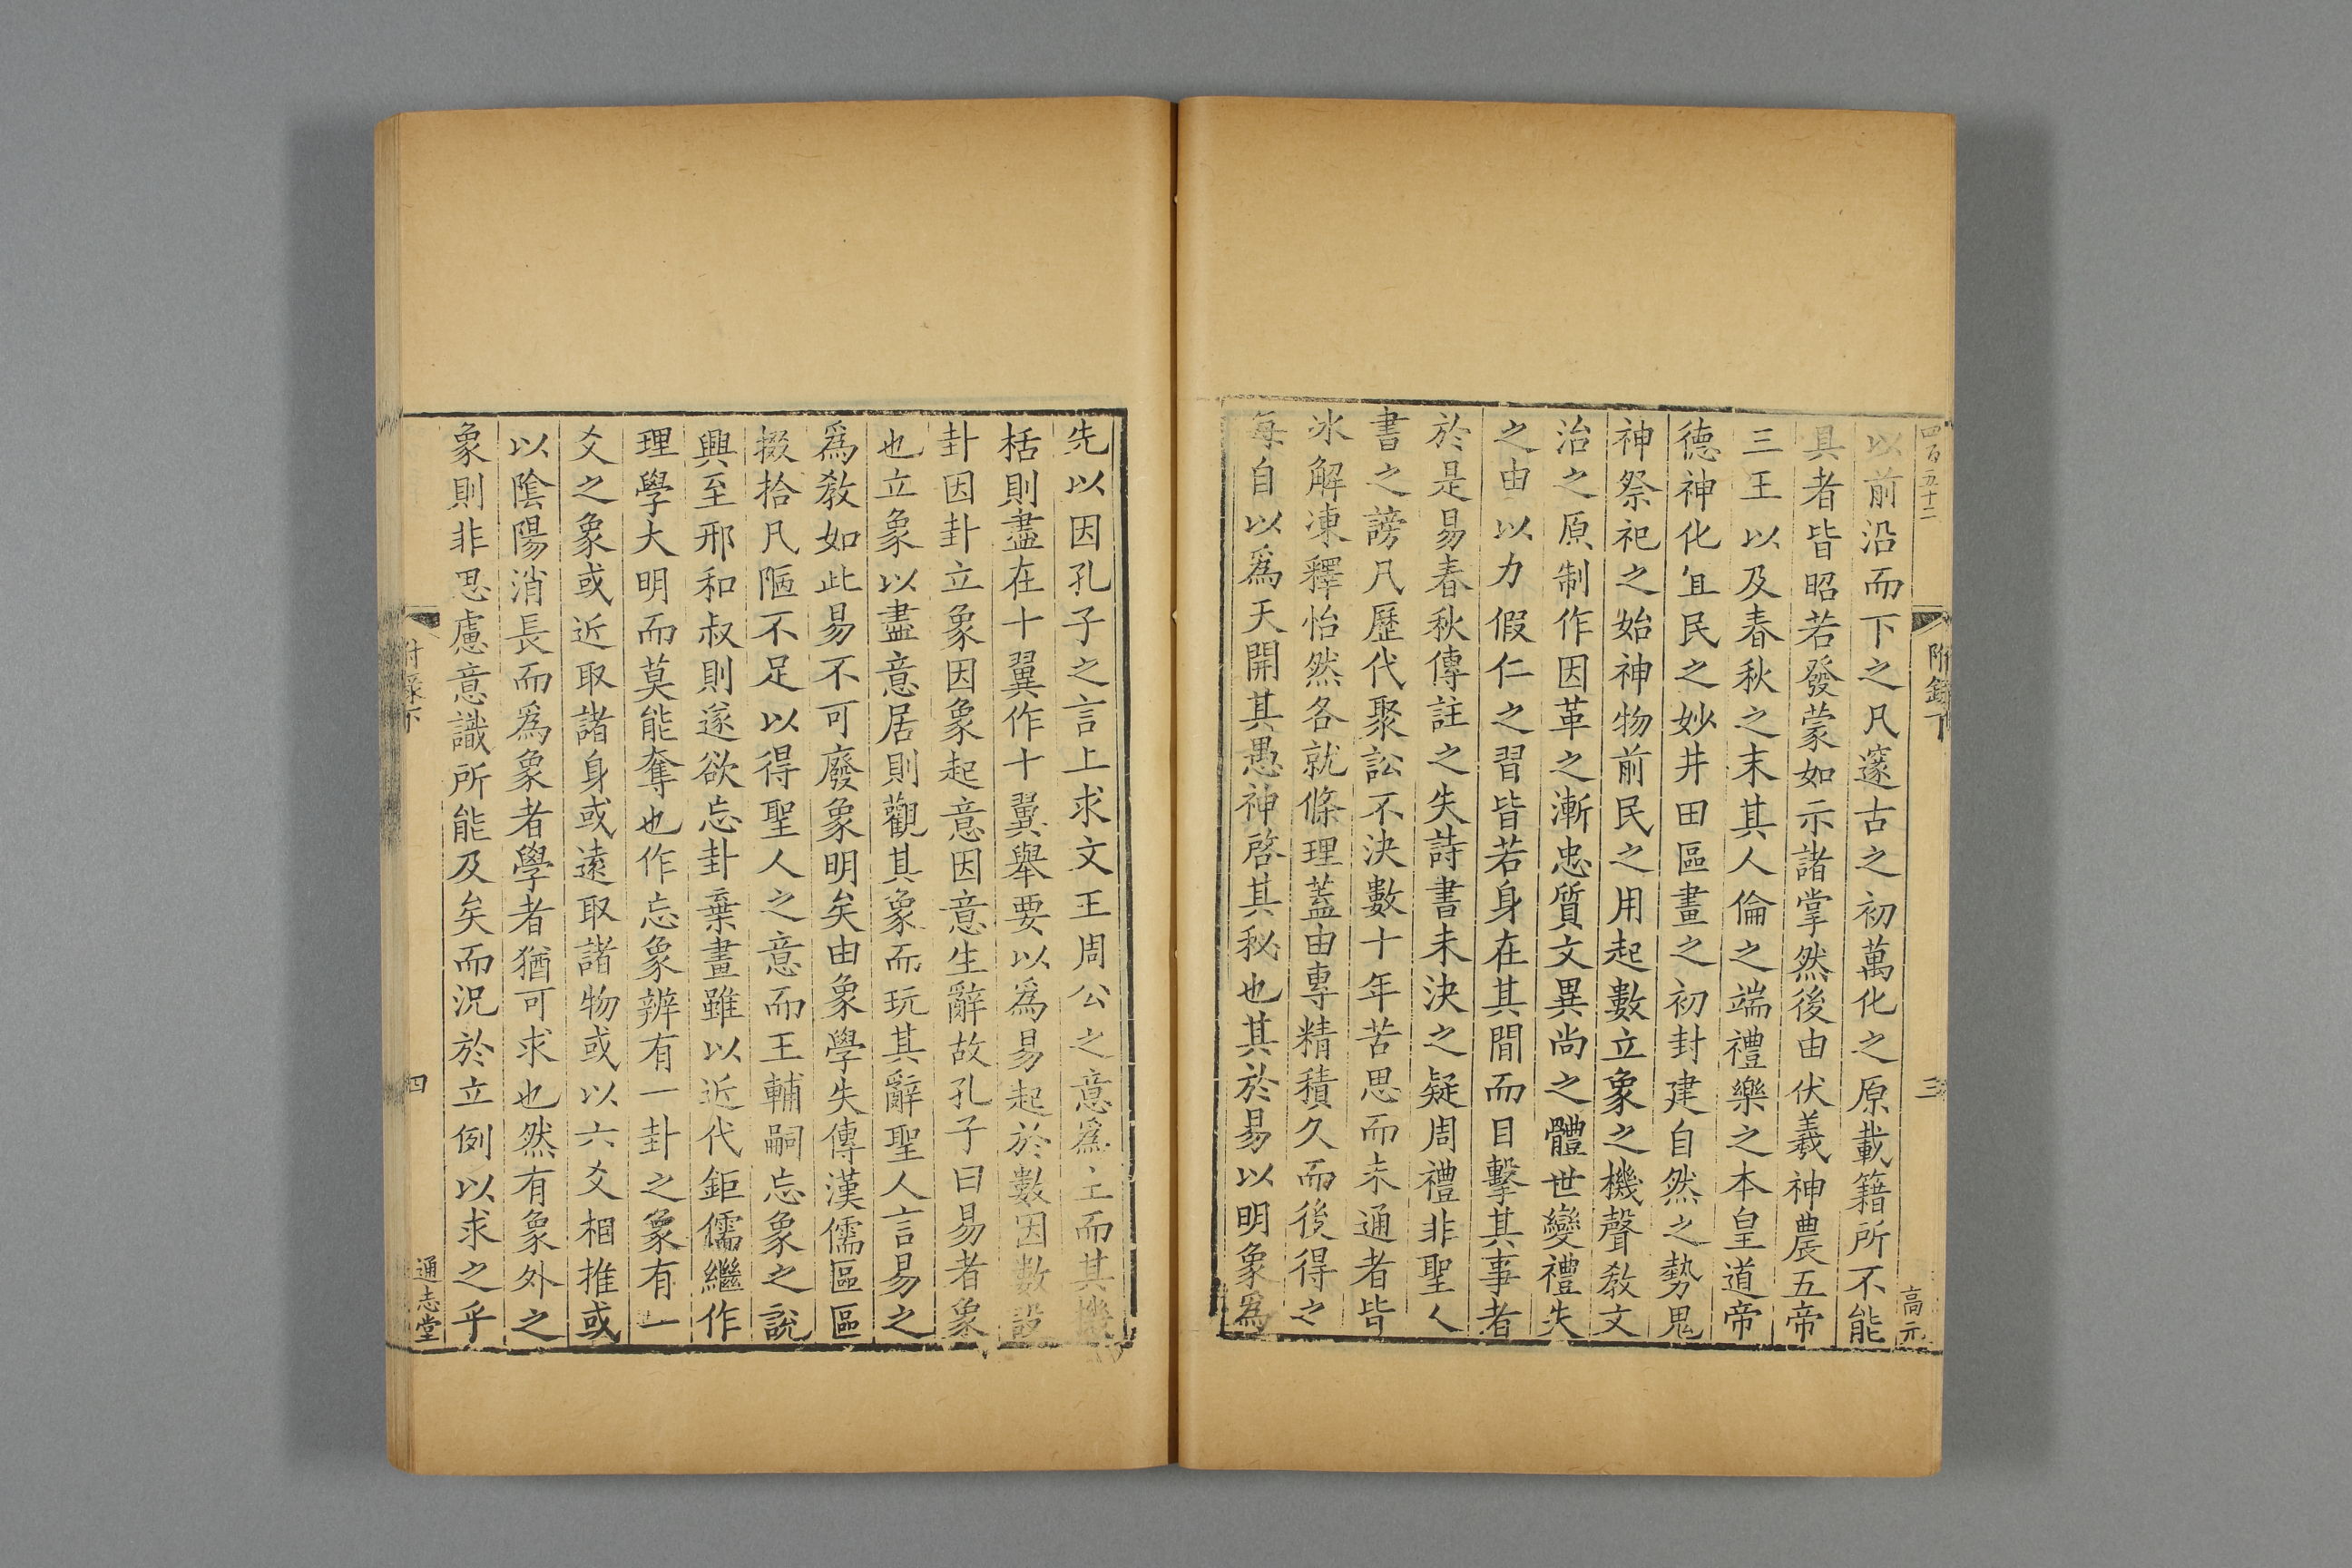 四百五十二
附錄下
三
高元
以前沿而下之凡邃古之初萬化之原載籍所不能
具者皆昭若發蒙如示諸掌然後由伏羲神農五帝
三王以及春秋之末其人倫之端禮樂之本皇道帝
德神化宜民之妙井田區畫之初封建自然之勢鬼
神祭祀之始神物前民之用起數立象之機聲教文
治之原制作因革之漸忠質文異尚之體世變禮失
之由以力假仁之習皆若身在其間而目擊其事者
於是易春秋傳註之失詩書未決之疑周禮非聖人
書之謗凡歷代聚訟不決數十年苦思而未通者皆
冰解凍釋怡然各就條理蓋由專精積久而後得之
每自以爲天開其愚神啓其秘也其於易以明象爲
先以因孔子之言上求文王周公之意爲主而其機
栝則盡在十翼作十翼舉要以爲易起於數因數設
卦因卦立象因象起意因意生辭故孔子曰易者象
也立象以盡意居則觀其象而玩其辭聖人言易之
爲教如此易不可廢象明矣由象學失傳漢儒區區
掇拾凡陋不足以得聖人之意而王輔嗣忘象之說
興至邢和叔則遂欲忘卦棄畫雖以近代鉅儒繼作
理學大明而莫能奪也作忘象辨有一卦之象有一
爻之象或近取諸身或遠取諸物或以六爻相推或
以陰陽消長而爲象者學者猶可求也然有象外之
象則非思慮意識所能及矣而況於立例以求之乎
附錄下
四
通志堂